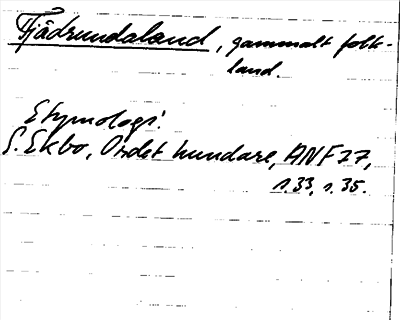 Fjädrundaland, gammalt folk-
land.
Etymologi:
S. Ekbo, Ordet hundare, ANF 77,
s. 33, s. 35.